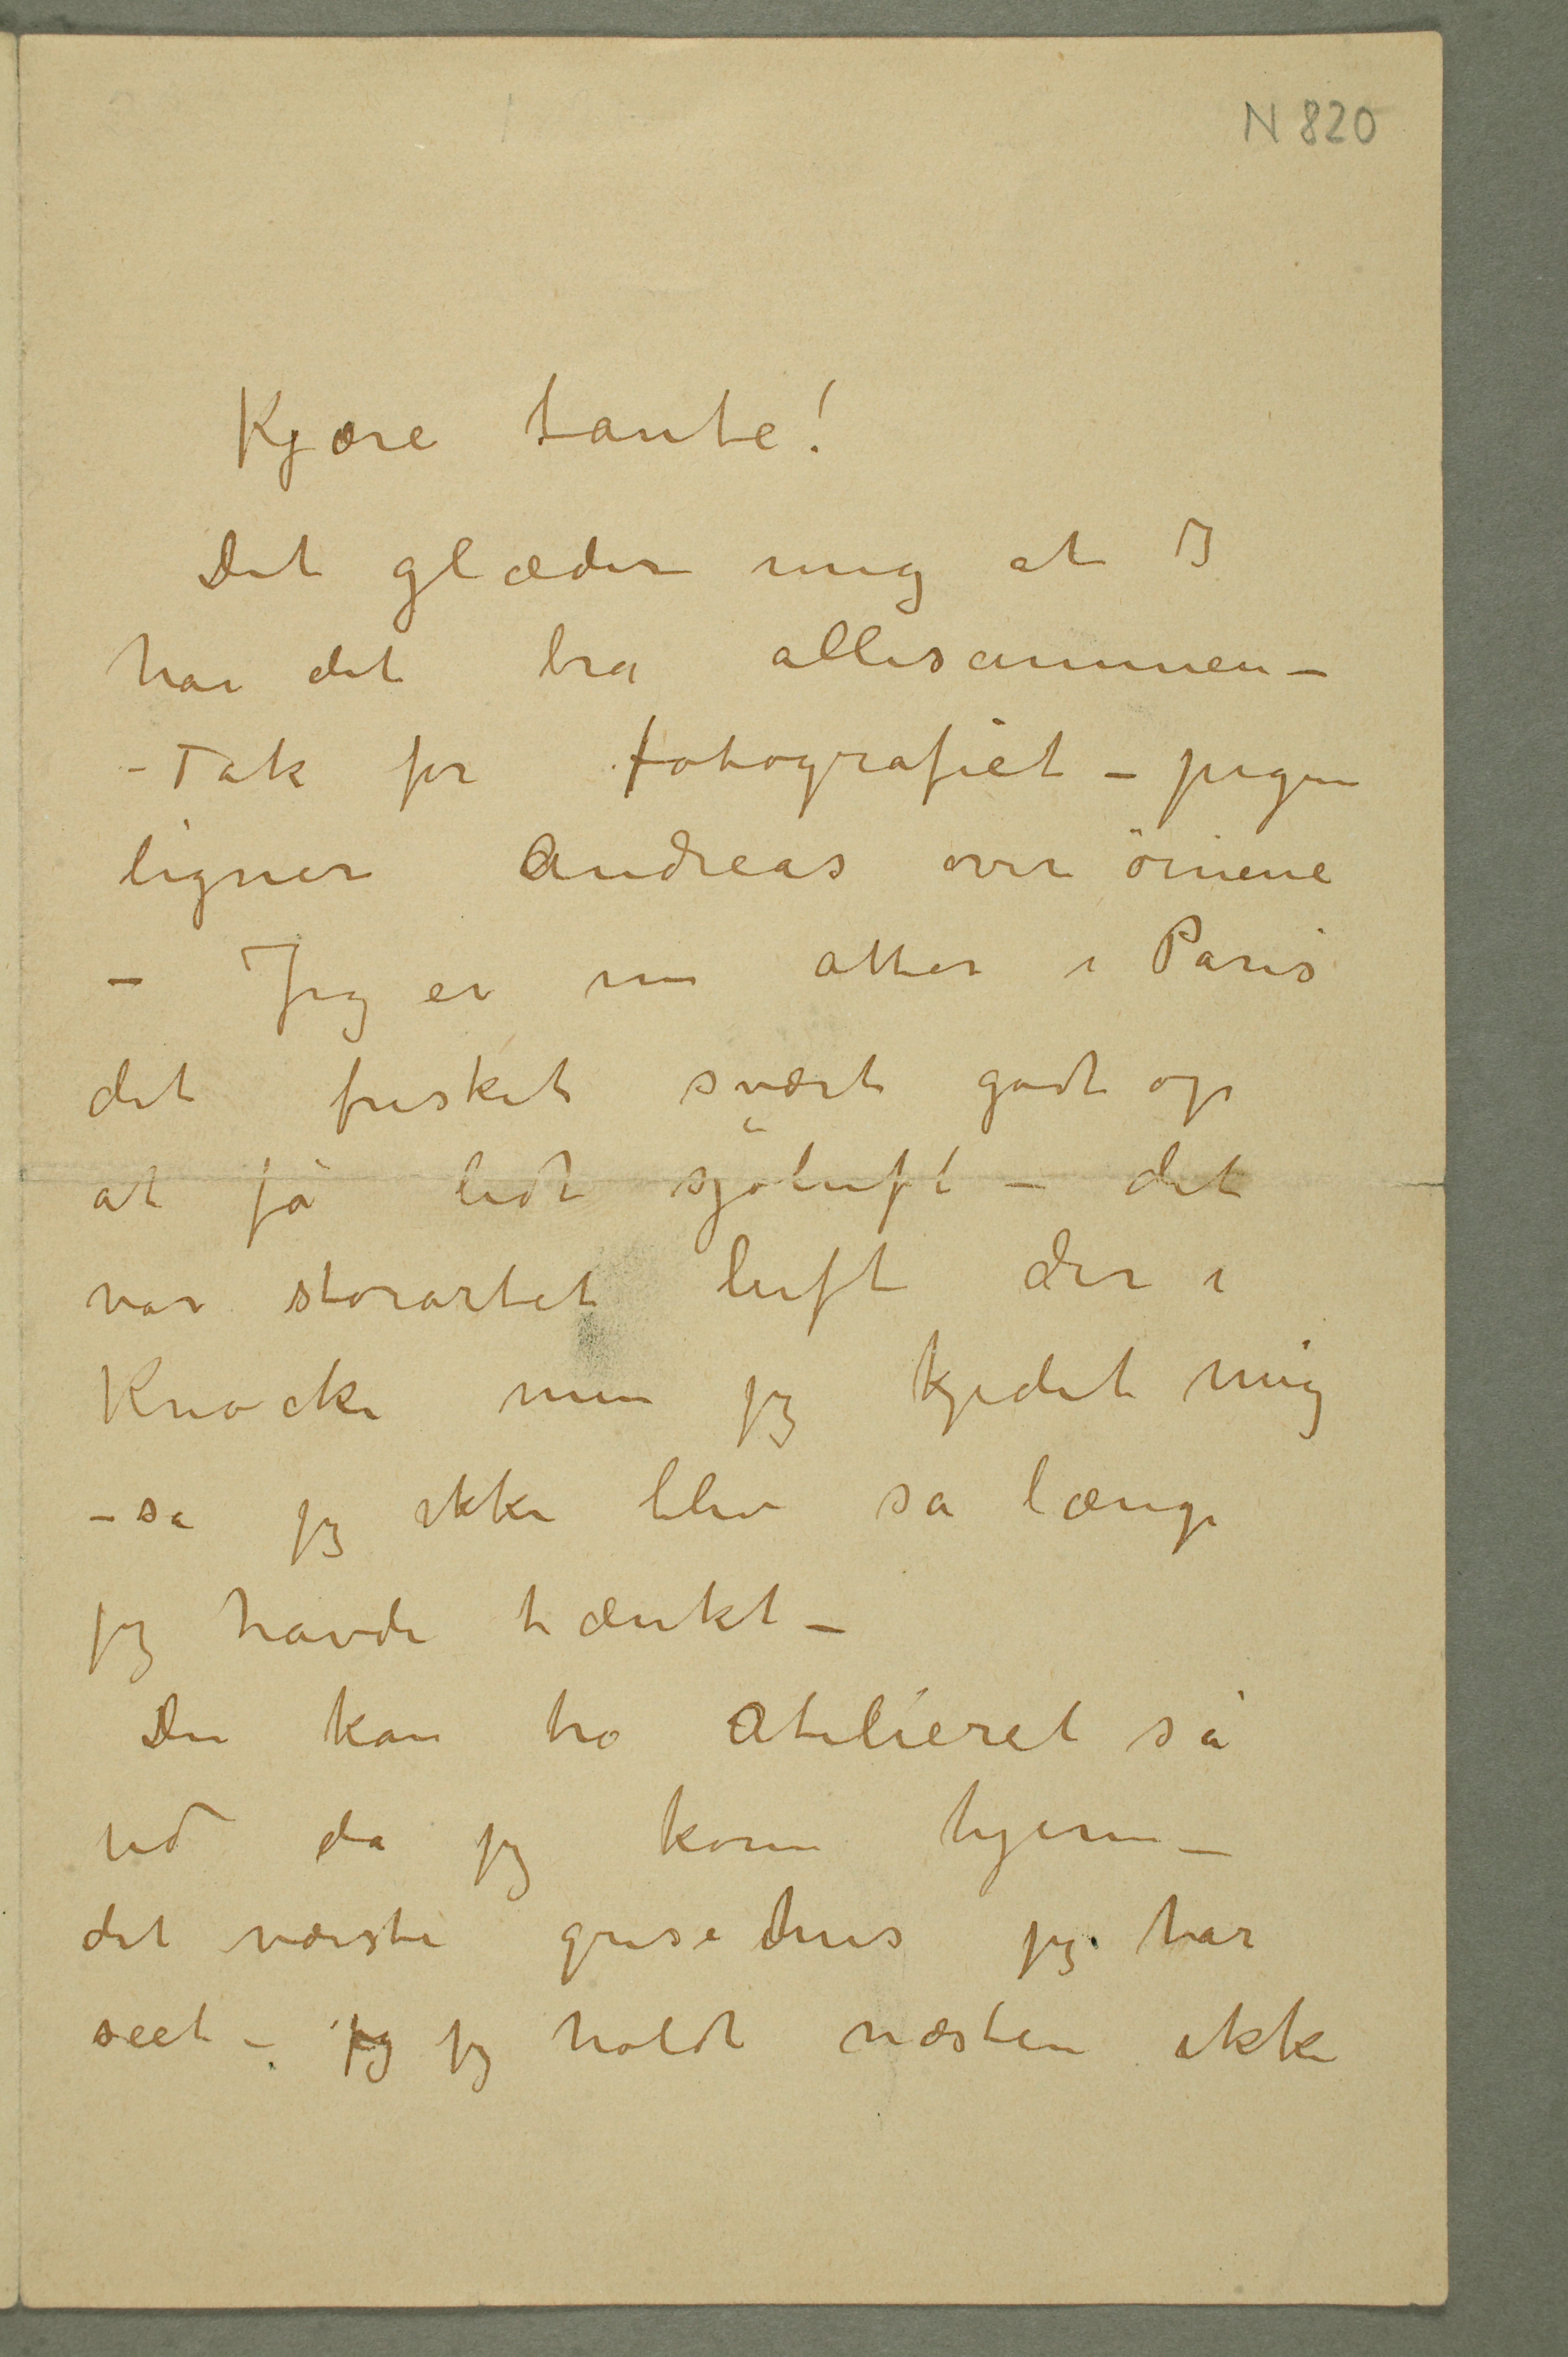 N 820
Kjære tante!
Det glæder mig at I
har det bra allesammen –
– Tak for fotografiet – pigen
ligner Andreas over öinene
– Jeg er nu atter i Paris
det frisket svært godt op
at få lidt sjöluft – det
var storartet luft der i
Knocke men jeg kjedet mig
– så jeg ikke blev så længe
jeg havde tænkt –
Du kan tro Atelieret så
ud da jeg kom hjem –
det værste grisehus jeg har
seet – jeg jeg holdt næsten ikke